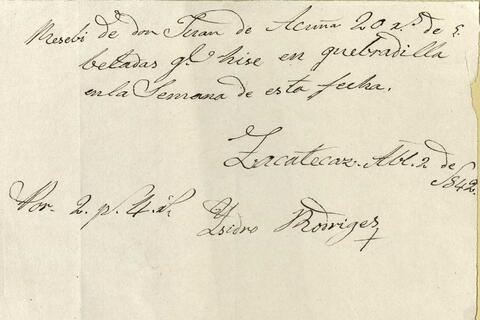 Resebi de don Juan de Acuña 20 r.s de
beladas q.e hise en quebradilla
en la Semana de esta fecha.
Zacatecaz. Abl. 2 de
1842.
Por. 2. p.s 4. r.s Ysidro Rodriges